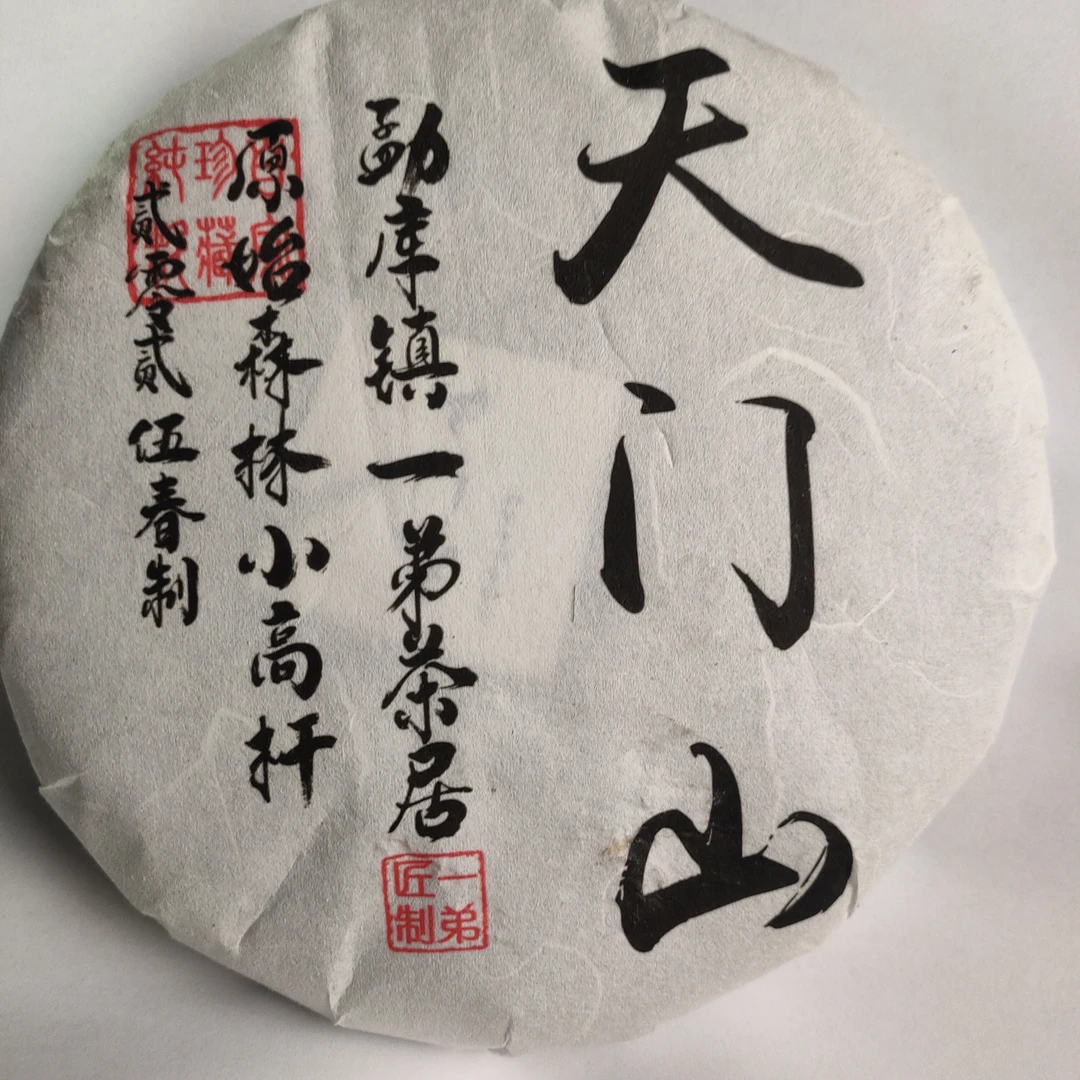 天门山
勐库镇一弟茶居
一弟
匠制
原始森林小高杆
贰零贰伍春制
珍藏